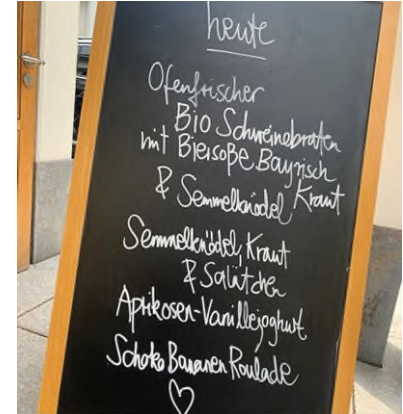 heute
Ofenfrischer
Bio Schweinebraten
mit Biersoße, Bayrisch
& Semmelknödel Kraut
Semmelknödel, Kraut
& Salätchen
Aprikosen-Vanillejoghurt
Schoko Bananen Roulade